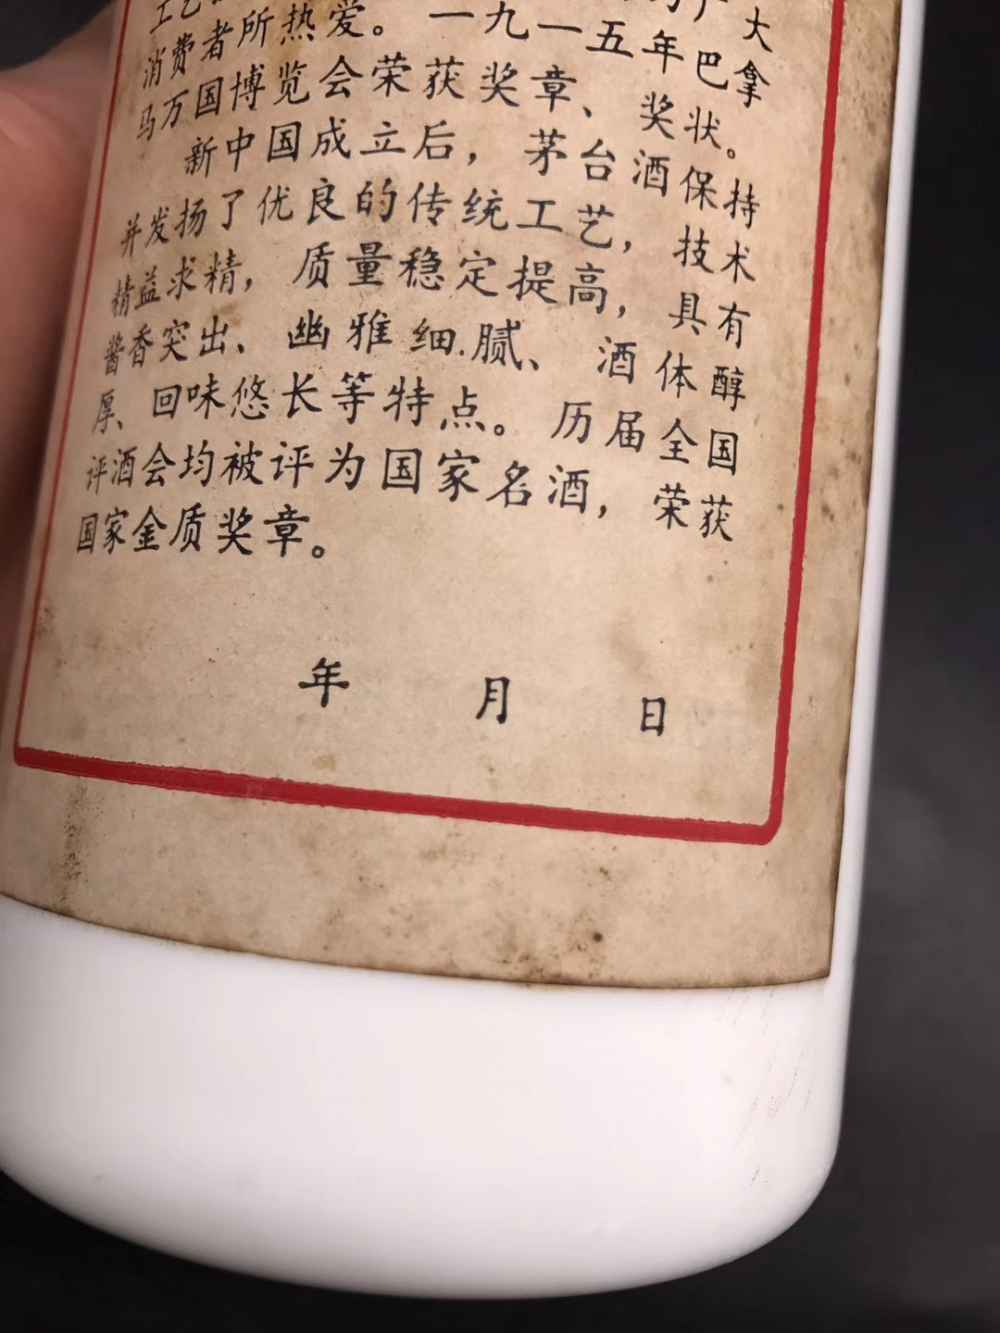 工艺
大
消费者所热爱。一九一五年巴拿
马万国博览会荣获奖章、奖状。
新中国成立后，茅台酒保持
并发扬了优良的传统工艺，技术
精益求精，质量稳定提高，具有
酱香突出、幽雅细腻、酒体醇
厚、回味悠长等特点。历届全国
评酒会均被评为国家名酒，荣获
国家金质奖章。
年 月 日